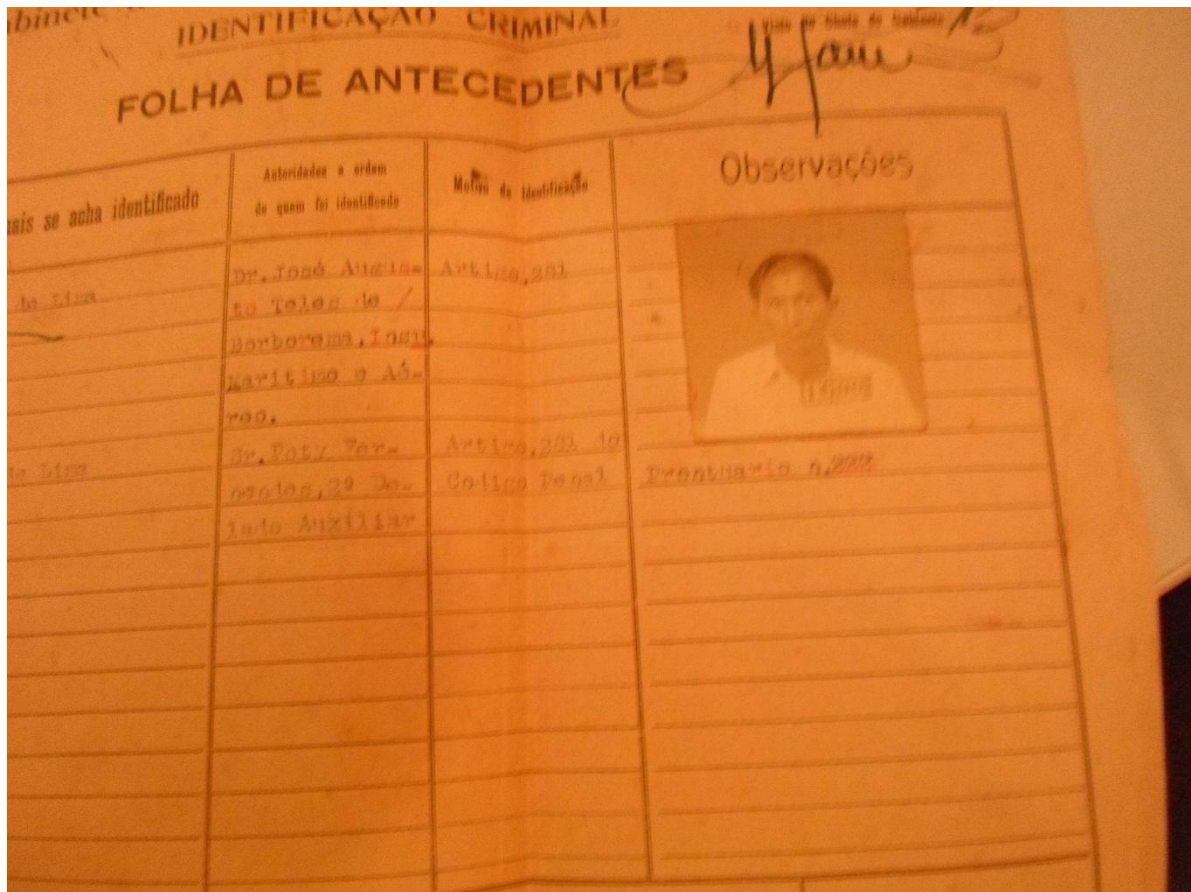 abinete
IDENTIFICAÇÃO CRIMINAL
Visto do Chefe do Gabinete
FOLHA DE ANTECEDENTES
ais se acha identificado
Autoridades a ordem
de quem foi identificado
Motivo da Identificação
Observações
de Lira
Dr. José Augus-
to Teles de /
Borborema, Insp.
Maritimo e Aé-
reo.
Artigo, 281
de Lira
Dr. Poty Fer-
nandes, 2º De-
lado Auxiliar
Artigo, 281 do
Codigo Penal
Prontuario n. 222